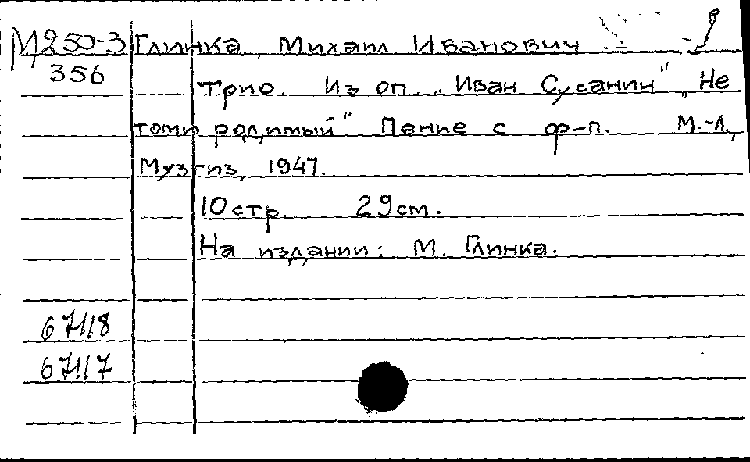 М250-3 Глинка, Михаил Иванович
356
Трио. Из оп. „Иван Сусанин" „Не
томи родимый" Пение с ф-п. М.-Л.,
Музгиз, 1947.
10 стр. 29 см.
На издании: М. Глинка.
67118
67117